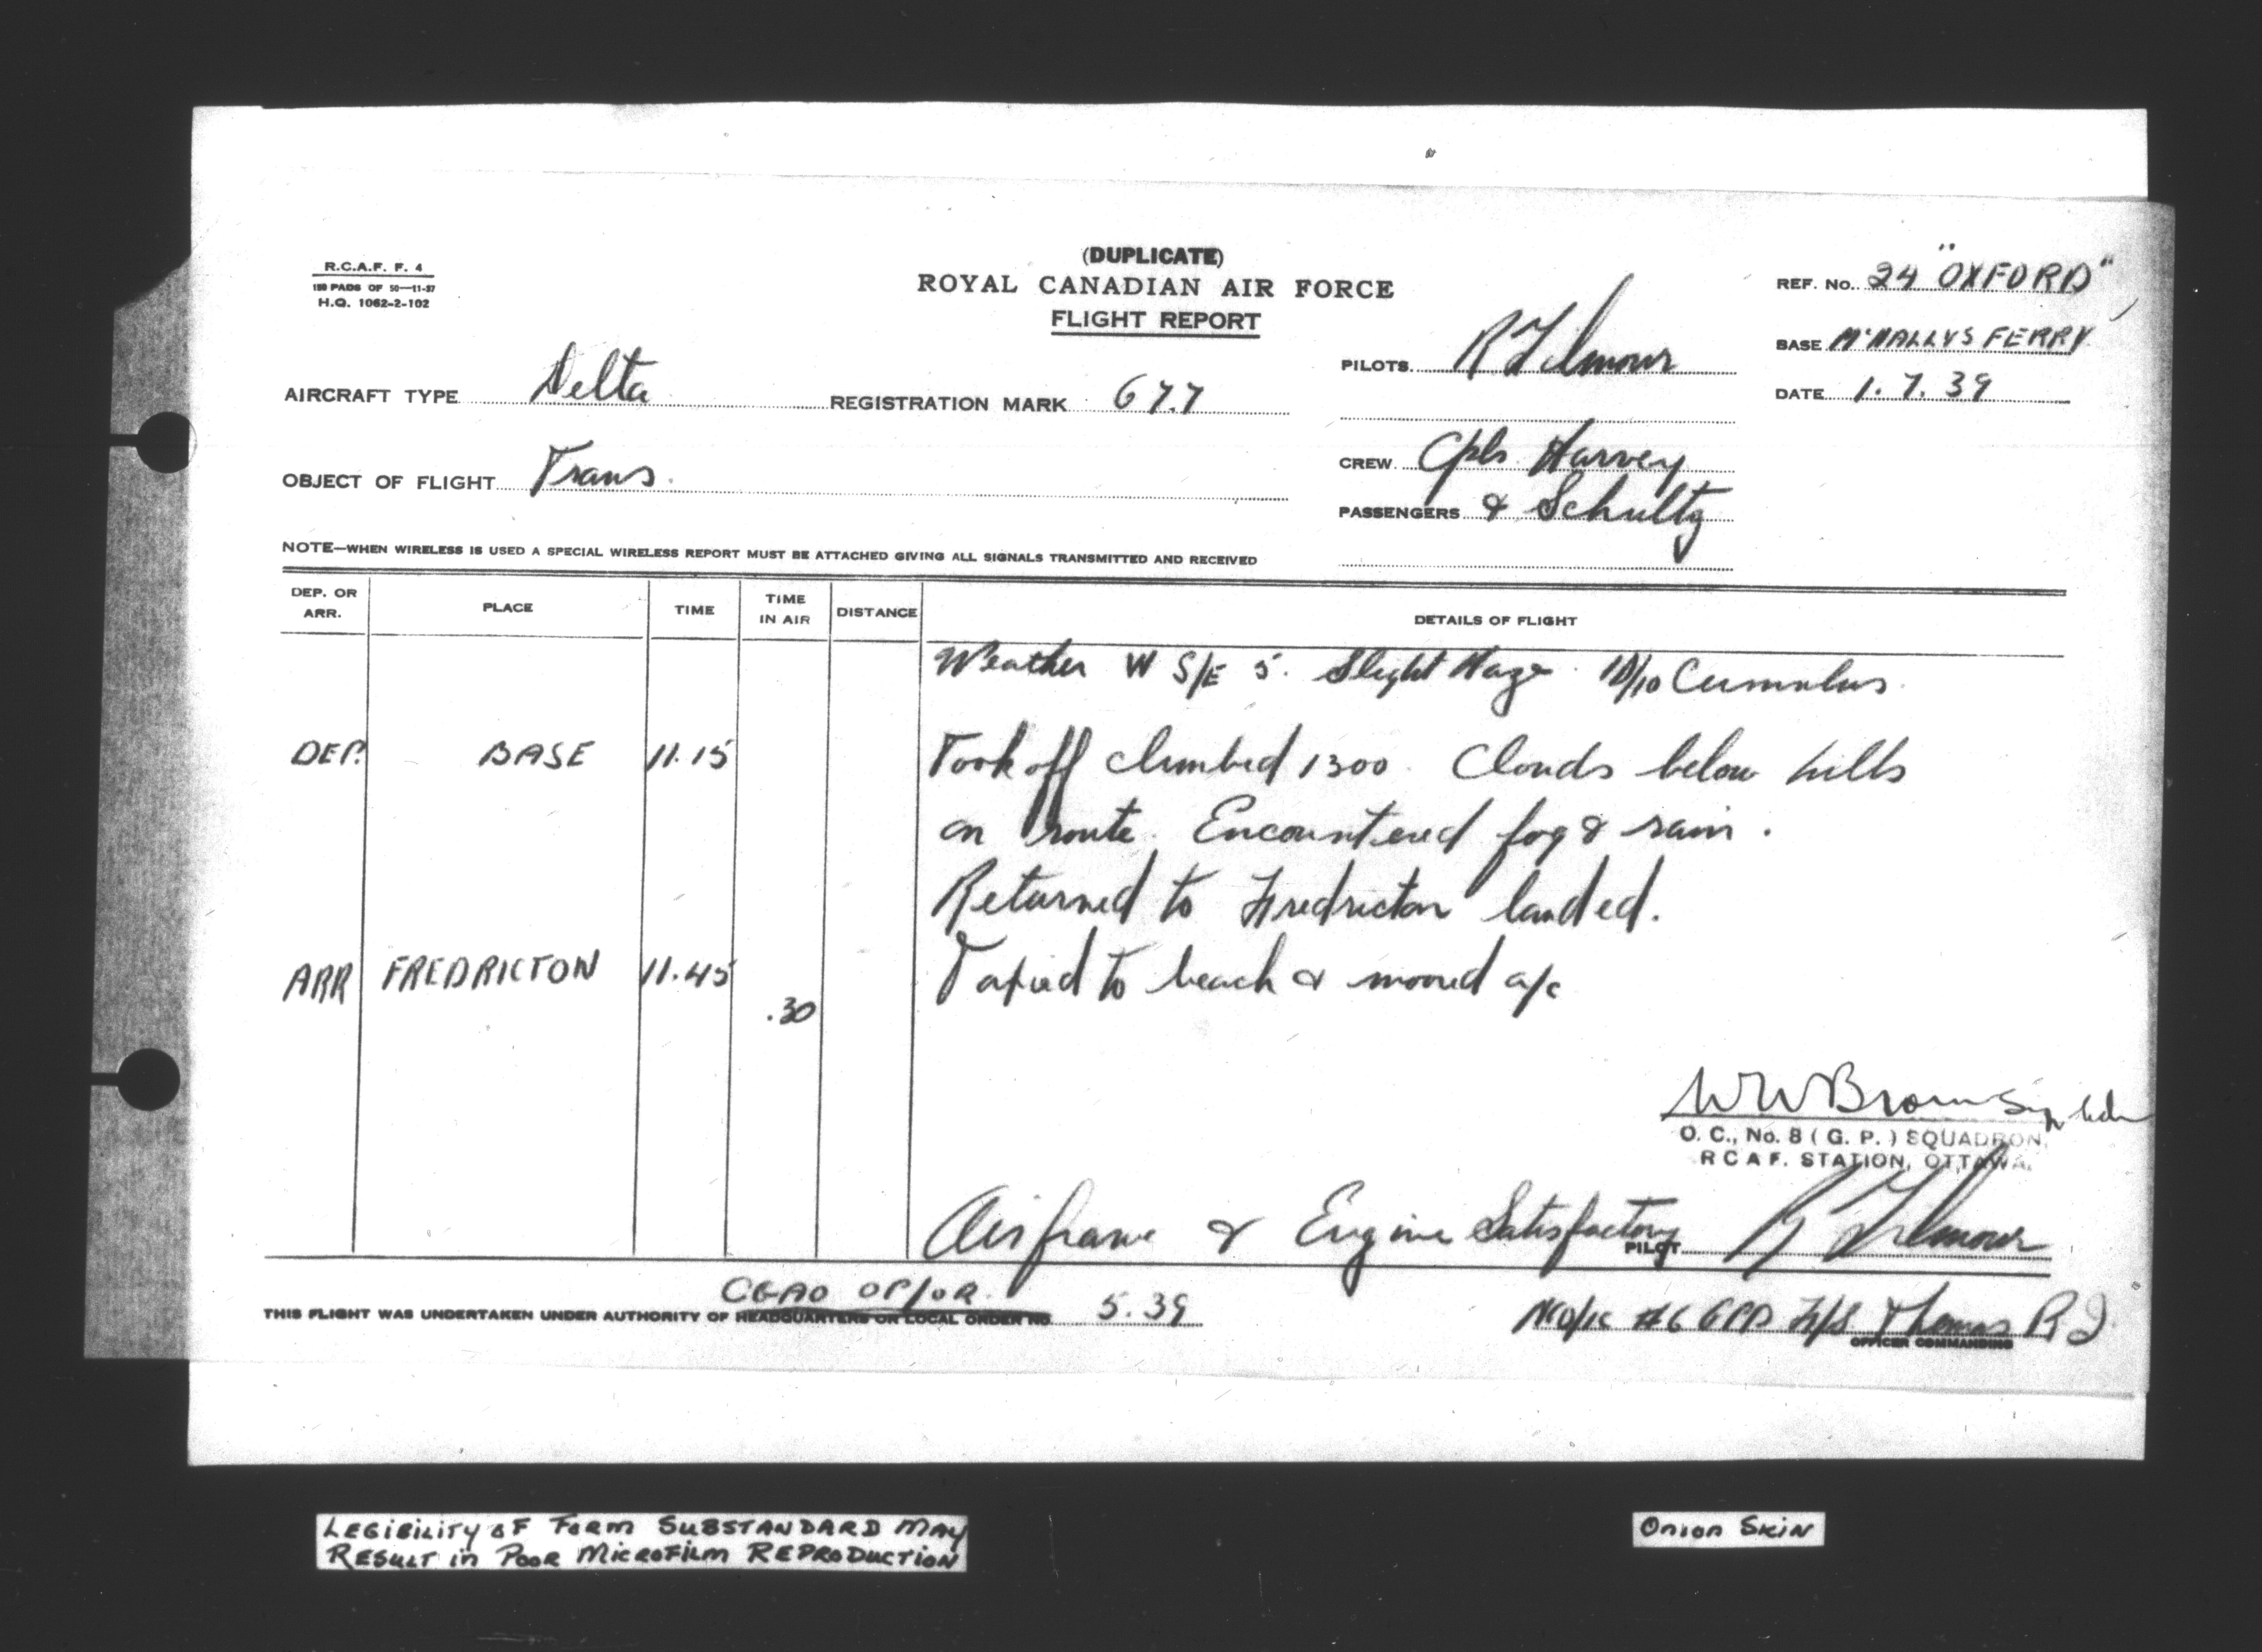 R.C.A.F. F. 4
150 PADS OF 50—11-37
H.Q. 1062-2-102
(DUPLICATE)
ROYAL CANADIAN AIR FORCE
FLIGHT REPORT
REF. No. 24 "OXFORD"
BASE McNALLYS FERRY
DATE 1.7.39
PILOTS R Gilmour
AIRCRAFT TYPE Delta REGISTRATION MARK 677
CREW Cpls Harvey
OBJECT OF FLIGHT Trans.
PASSENGERS & Schultz
NOTE—WHEN WIRELESS IS USED A SPECIAL WIRELESS REPORT MUST BE ATTACHED GIVING ALL SIGNALS TRANSMITTED AND RECEIVED
DEP. OR ARR. PLACE TIME TIME IN AIR DISTANCE DETAILS OF FLIGHT
Weather W S/E 5. Slight Haze. 10/10 Cumulus.
DEP. BASE 11.15 Took off climbed 1300. Clouds below hills
on route. Encountered fog & rain.
Returned to Fredricton landed.
ARR FREDRICTON 11.45 .30 Taxied to beach & moored a/c
WW Brown
O. C., No. 8 ( G. P. ) SQUADRON,
R C A F. STATION, OTTAWA.
Airframe & Engine Satisfactory PILOT R Gilmour
CGAO OP/OR.
THIS FLIGHT WAS UNDERTAKEN UNDER AUTHORITY OF HEADQUARTERS OR LOCAL ORDER NO. 5.39
#6 F/S Thomas R J.
OFFICER COMMANDING
LEGIBILITY OF FORM SUBSTANDARD MAY
RESULT in POOR MICROFILM REPRODUCTION
Onion SKIN